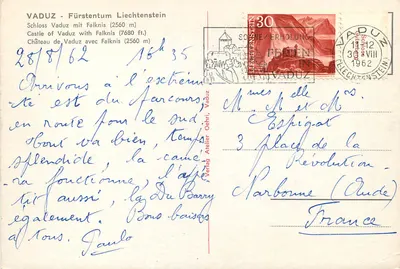 VADUZ - Fürstentum Liechtenstein
Schloss Vaduz mit Falknis (2560 m)
Castle of Vaduz with Falknis (7680 ft.)
Château de Vaduz avec Falknis (2560 m)
28/8/62 16h35
Arrivons à l'extrémi
té est du parcours,
en route pour le sud.
Tout va bien, temps
splendide, la camé-
ra fonctionne, l'appé
tit aussi, la Du Barry
également. Bons baisers
à tous. Paulo
Verlag Atelier Oehri, Vaduz
30
FERIEN
VADUZ
VADUZ
11-12
30 VIII
1962
(LIECHTENSTEIN)
M. M et M
Espigat
3 place de la
Révolution
Narbonne (Aude)
France